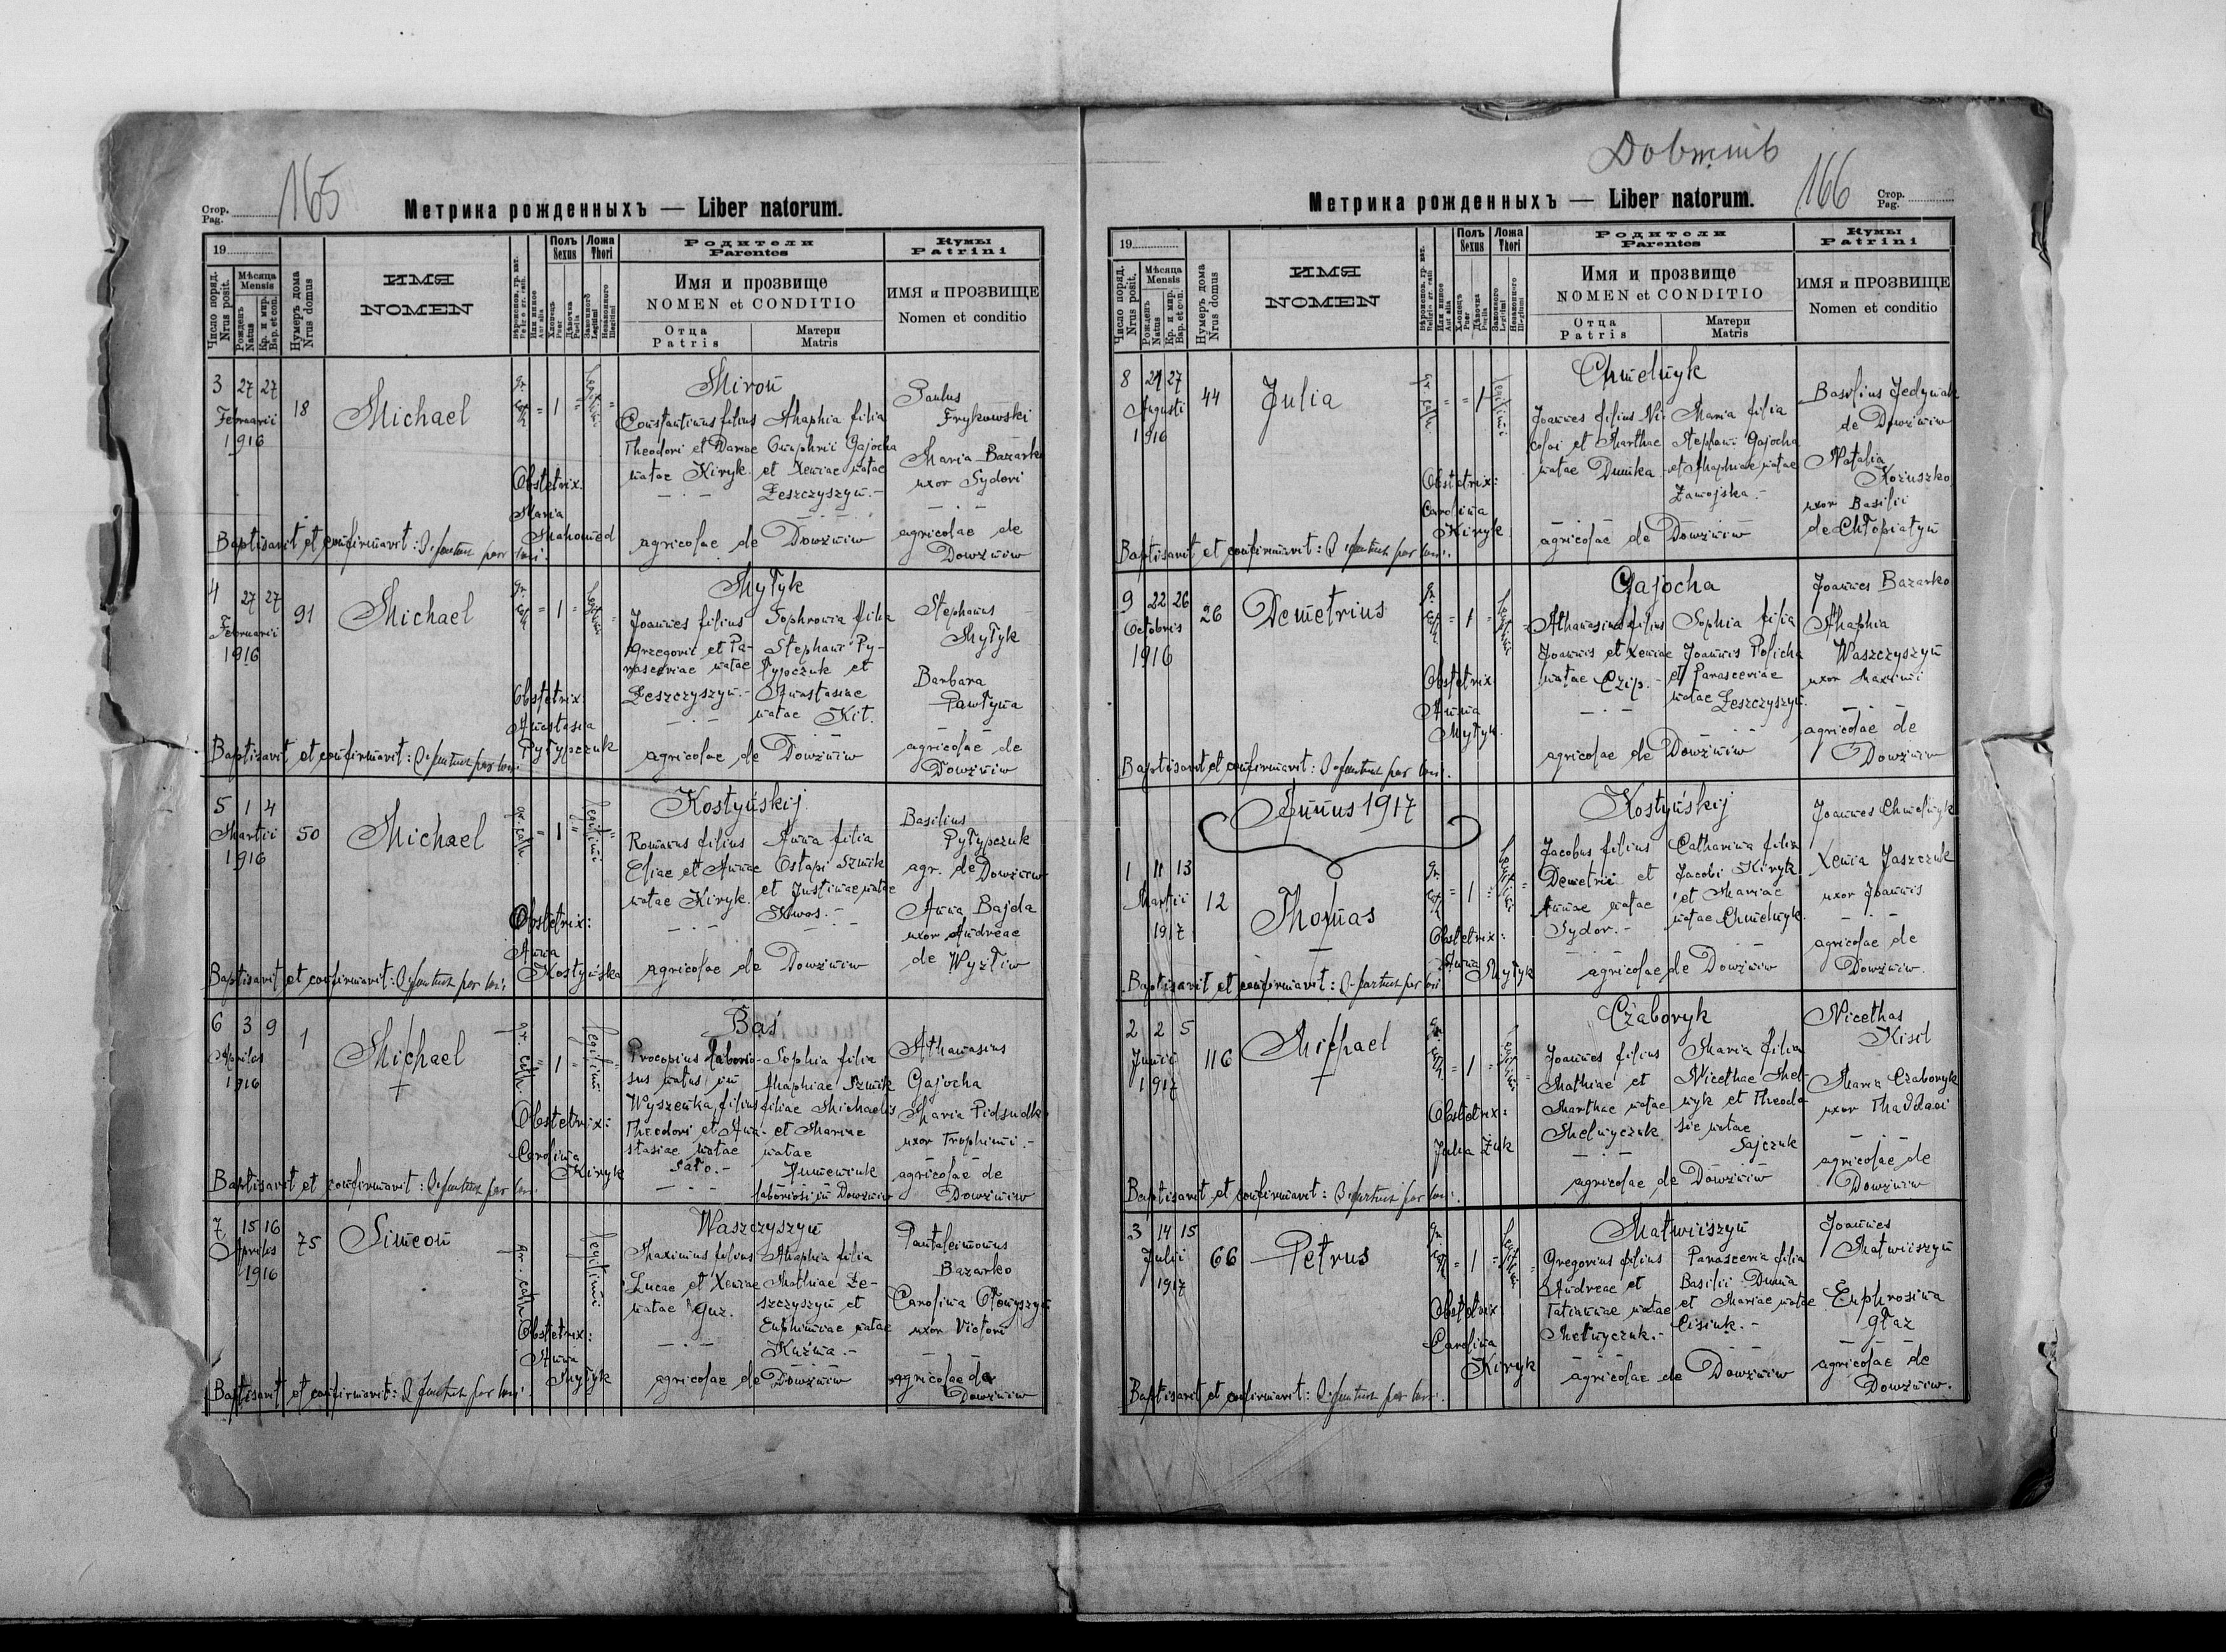 165
Стор.
Pag.
Метрика рожденныхъ — Liber natorum.
19
Число поряд.
Nrus posit.
Мѣсяца
Mensis
Рожденъ
Natus
Кр. и мир.
Bap. et con.
Нумеръ дома
Nrus domus
ИМЯ
NOMEN
Полъ
Sexus
Хлопець
Puer
Дѣвочка
Puella
Ложа
Thori
Законного
Legitimi
Незаконного
Illegitimi
Родители
Parentes
Имя и прозвище
NOMEN et CONDITIO
Отца
Patris
Матери
Matris
Кумы
Patrini
ИМЯ и ПРОЗВИЩЕ
Nomen et conditio
3 27 27
Februarii
1916
18
Michael
gr. cath.
1
legitimi
Miron
Constantinus filius
Theodori et Dariae
natae Kiryk
Ahaphia filia
Onuphrii Gajocha
et Xeniae natae
Leszczyszyn.
agricolae de Dowzniw
Paulus
Frykowski
Maria Bazarko
uxor Sydori
agricolae de
Dowzniw
Obstetrix:
Maria
Mahomed
Baptisavit et confirmavit:
4 27 27
Februarii
1916
91
Michael
gr. cath.
1
legitimi
Mytyk
Joannes filius
Grzegorii et Pa-
rasceviae natae
Leszczyszyn.
Sophronia filia
Stephani Py-
typczuk et
Anastasiae
natae Kit.
agricolae de Dowzniw
Stephanus
Mytyk
Barbara
Pawtyna
agricolae de
Dowzniw
Obstetrix
Anastasia
Pytypczuk
Baptisavit et confirmavit:
5 1 4
Martii
1916
50
Michael
gr. cath.
1
legitimi
Kostyńskij
Romanus filius
Eliae et Annae
natae Kiryk.
Anna filia
Ostapi Szmik
et Justinae natae
Kwas.
agricolae de Dowzniw
Basilius
Pytypczuk
agr. de Dowzniw
Anna Bajda
uxor Andreae
de Wyztiw
Obstetrix:
Anna
Kostyńska
Baptisavit et confirmavit:
6 3 9
Aprilis
1916
1
Michael
gr. cath.
1
legitimi
Baś
Procopius laborio-
sus natus in
Wyszenka, filius
Theodori et Ana-
stasiae natae
Sato.
Sophia filia
Ahaphiae Szmik
filiae Michaelis
et Mariae
natae
Humeniuk
laboriosi in Dowzniw
Athanasius
Gajocha
Maria Pidsudko
uxor Trophimi.
agricolae de
Dowzniw
Obstetrix:
Carolina
Kiryk
Baptisavit et confirmavit:
7 15 16
Aprilis
1916
75
Simeon
gr. cath.
legitimi
Waszczyszyn
Maximus filius
Lucae et Xeniae
natae Guz.
Ahaphia filia
Mathiae Le-
szczyszyn et
Euphimiae natae
Kuźma.
agricolae de Dowzniw
Pantaleimonus
Bazarko
Carolina Otomyszyn
uxor Victori
agricolae de
Dowzniw
Obstetrix:
Anna
Mytyk
Baptisavit et confirmavit:
166
Стор.
Pag.
Метрика рожденныхъ — Liber natorum.
19
Число поряд.
Nrus posit.
Мѣсяца
Mensis
Рожденъ
Natus
Кр. и мир.
Bap. et con.
Нумеръ дома
Nrus domus
ИМЯ
NOMEN
Полъ
Sexus
Хлопець
Puer
Дѣвочка
Puella
Ложа
Thori
Законного
Legitimi
Незаконного
Illegitimi
Родители
Parentes
Имя и прозвище
NOMEN et CONDITIO
Отца
Patris
Матери
Matris
Кумы
Patrini
ИМЯ и ПРОЗВИЩЕ
Nomen et conditio
8 27
Augusti
1916
44
Julia
gr. cath.
1
legitimi
Chmelnyk
Joannes filius Ni-
colai et Marthae
natae Dumka
Maria filia
Stephani Gajocha
et Ahaphiae natae
Zamojska.
agricolae de Dowzniw
Basilius Jedynak
de Dowzniw
Natalia
Kozuszko
uxor Basilii
de Chtopiatyn
Obstetrix:
Carolina
Kiryk
Baptisavit et confirmavit:
9 22 26
Octobris
1916
26
Demetrius
gr. cath.
1
legitimi
Gajocha
Athanasius filius
Joannis et Xeniae
natae Czip.
Sophia filia
Joannis Policha
et Parasceviae
natae Leszczyszyn.
agricolae de Dowzniw
Joannes Bazarko
Ahaphia
Waszczyszyn
uxor Maximi
agricolae de
Dowzniw
Obstetrix
Anna
Mytyk.
Baptisavit et confirmavit:
Annus 1917
1 11 13
Martii
1917
12
Thomas
gr. cath.
1
legitimi
Kostyńskij
Jacobus filius
Demetrii et
Annae natae
Sydor.
Catharina filia
Jacobi Kiryk
et Mariae
natae Chmelnyk.
agricolae de Dowzniw
Joannes Chmelnyk
Xenia Jaszczuk
uxor Joannis
agricolae de
Dowzniw.
Obstetrix:
Anna Mytyk
Baptisavit et confirmavit:
2 2 5
Junii
1917
116
Michael
gr. cath.
1
legitimi
Czaboryk
Joannes filius
Mathiae et
Marthae natae
Melnyczuk
Maria filia
Nicethae Mel-
nyk et Theodo-
siae natae
Sajczuk
agricolae de Dowzniw
Nicethas
Kisil
Maria Czaboryk
uxor Thaddaei
agricolae de
Dowzniw
Obstetrix:
Julia Żuk
Baptisavit et confirmavit:
3 14 15
Julii
1917
66
Petrus
gr. cath.
1
legitimi
Matwiiszyn
Gregorius filius
Andreae et
Tatiannae natae
Melnyczuk.
Parascevia filia
Basilii Duma
et Mariae natae
Cisiuk.
agricolae de Dowzniw
Joannes
Matwiiszyn
Euphrosina
Gtaz
agricolae de
Dowzniw.
Obstetrix
Carolina
Kiryk
Baptisavit et confirmavit: